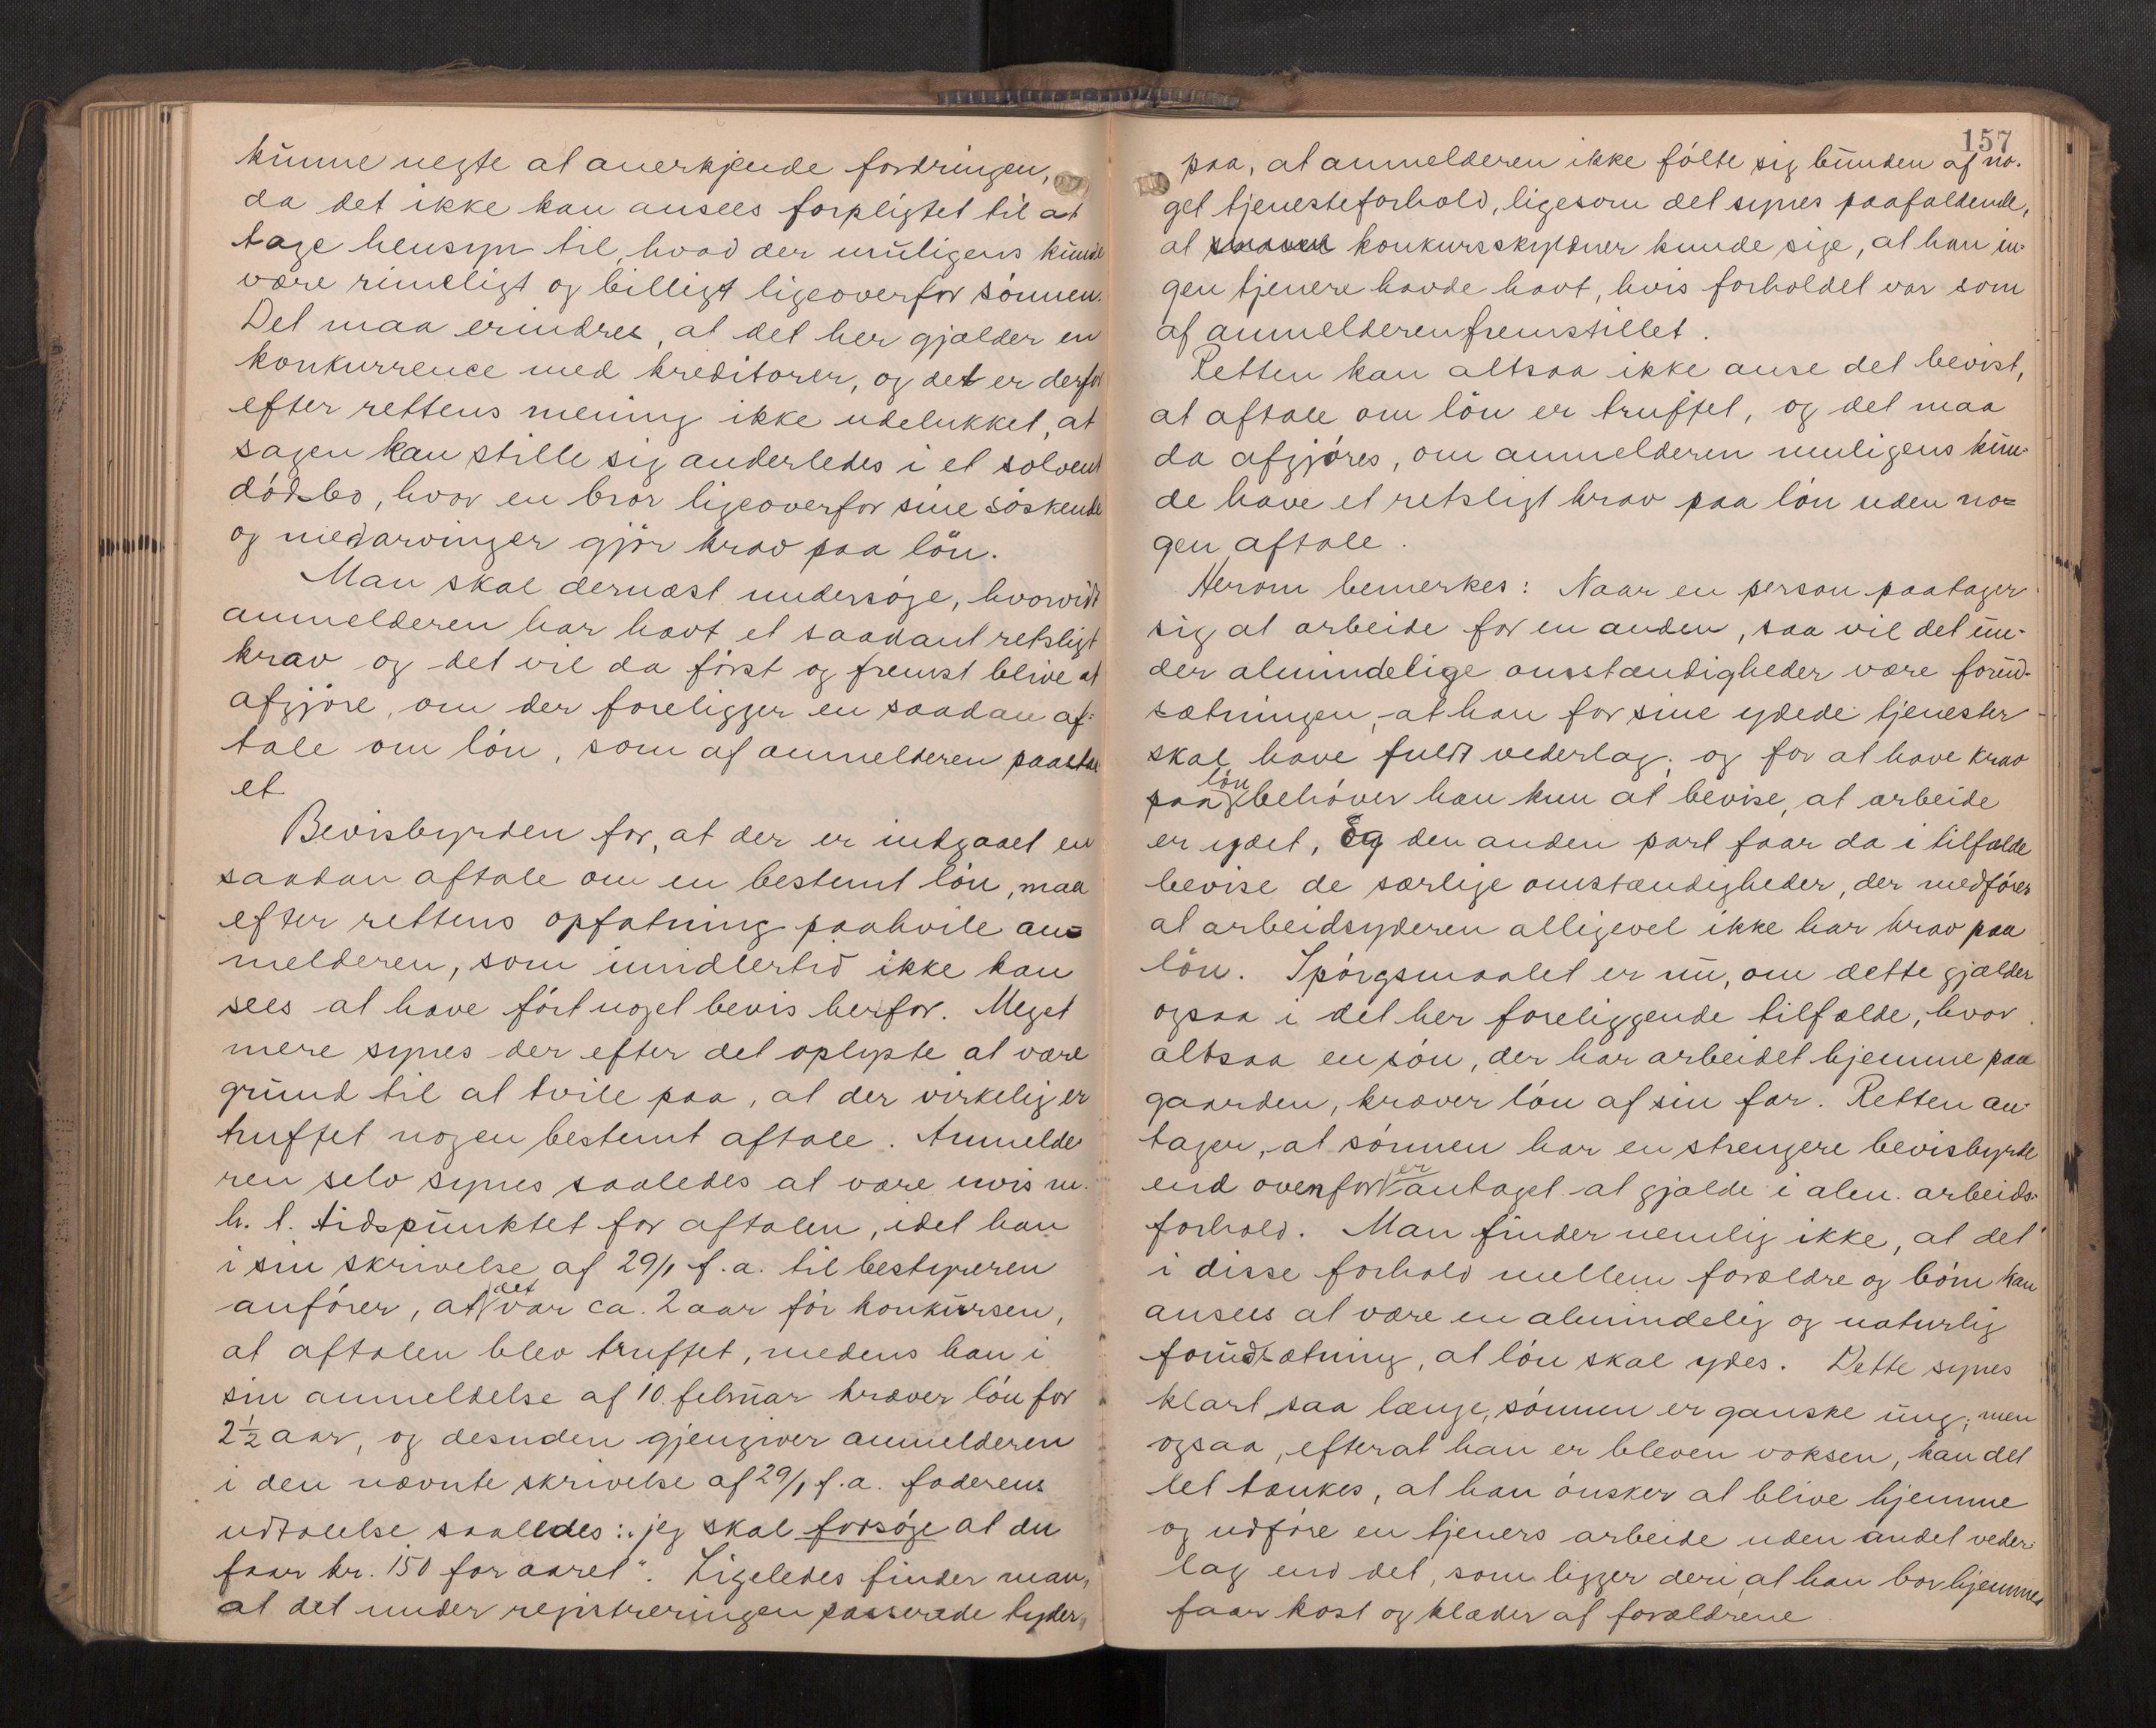 kunne negte at anerkjende fordringen,
da det ikke kan ansees forpligtet til at
tage hensyn til, hvad der muligens kunde
være rimeligt og billigt ligeoverfor sönnen.
Det maa erindres, at det her gjælder en
konkurrence med kreditorer, og det er derfor
efter rettens mening ikke udelukket, at
sagen kan stille sig anderledes i et solvent
dödsbo, hvor en bror ligeoverfor sine söskende
og medarvinger gjör krav paa lön.
Man skal dernæst undersöge, hvorvidt
anmelderen har havt et saadant retsligt
krav og det vil da först og fremst blive at
afgjöre, om der foreligger en saadan af-
tale om lön, som af anmelderen paastaa
et
Bevisbyrden for, at der er indgaaet en
saadan aftale om en bestemt lön, maa
efter rettens opfatning paahvile an-
melderen, som imidlertid ikke kan
sees at have fört noget bevis herfor. Meget
mere synes der efter det oplyste at være
grund til at tvile paa, at der virkelig er
truffet nogen bestemt aftale. Anmelde
ren selv synes saaledes at være uvis m.
h. t. tidspunktet for aftalen, idet han
i sin skrivelse af 29/1 f.a. til bestyreren
anförer, at det var ca. 2 aar för konkursen,
at aftalen blev truffet, medens han i
sin anmeldelse af 10. februar kræver lön for
2½ aar, og desuden gjengiver anmelderen
i den nævnte skrivelse af 29/1 f.a. faderens
udtalelse saaledes: „jeg skal forsöge at du
faar kr. 150 for aaret“. Ligeledes finder man,
at det under registreringen passerede tyder
157
paa, at anmelderen ikke fölte sig bunden af no-
get tjenesteforhold, ligesom det synes paafaldende,
at konkursskyldner kunde sige, at han in-
gen tjenere havde havt, hvis forholdet var som
af anmelderen fremstillet.
Retten kan altsaa ikke anse det bevist,
at aftale om lön er truffet, og det maa
da afgjöres, om anmelderen muligens kun-
de have et retsligt krav paa lön uden no-
gen aftale.
Herom bemerkes: Naar en person paatager
sig at arbeide for en anden, saa vil det un-
der almindelige omstændigheder være forud-
sætningen, at han for sine ydede tjenester
skal have fuldt vederlag; og for at have krav
paa lön behöver han kun at bevise, at arbeide
er ydet, Og den anden part faar da i tilfælde
bevise de særlige omstændigheder, der medförer
at arbeidsyderen alligevel ikke har krav paa
lön. Spörgsmaalet er nu, om dette gjælder
ogsaa i det her foreliggende tilfælde, hvor
altsaa en sön, der har arbeidet hjemme paa
gaarden, kræver lön af sin far. Retten an-
tager, at sönnen har en strengere bevisbyrde
end ovenfor er antaget at gjælde i alm. arbeids-
forhold. Man finder nemlig ikke, at det
i disse forhold mellem forældre og börn kan
ansees at være en almindelig og naturlig
forudsætning, at lön skal ydes. Dette synes
klart, saa længe, sönnen er ganske ung; men
ogsaa, efterat han er bleven voksen, kan det
let tænkes, at han önsker at blive hjemme
og udföre en tjeners arbeide uden andet veder-
lag end det, som ligger deri, at han bor hjemme,
faar kost og klæder af forældrene